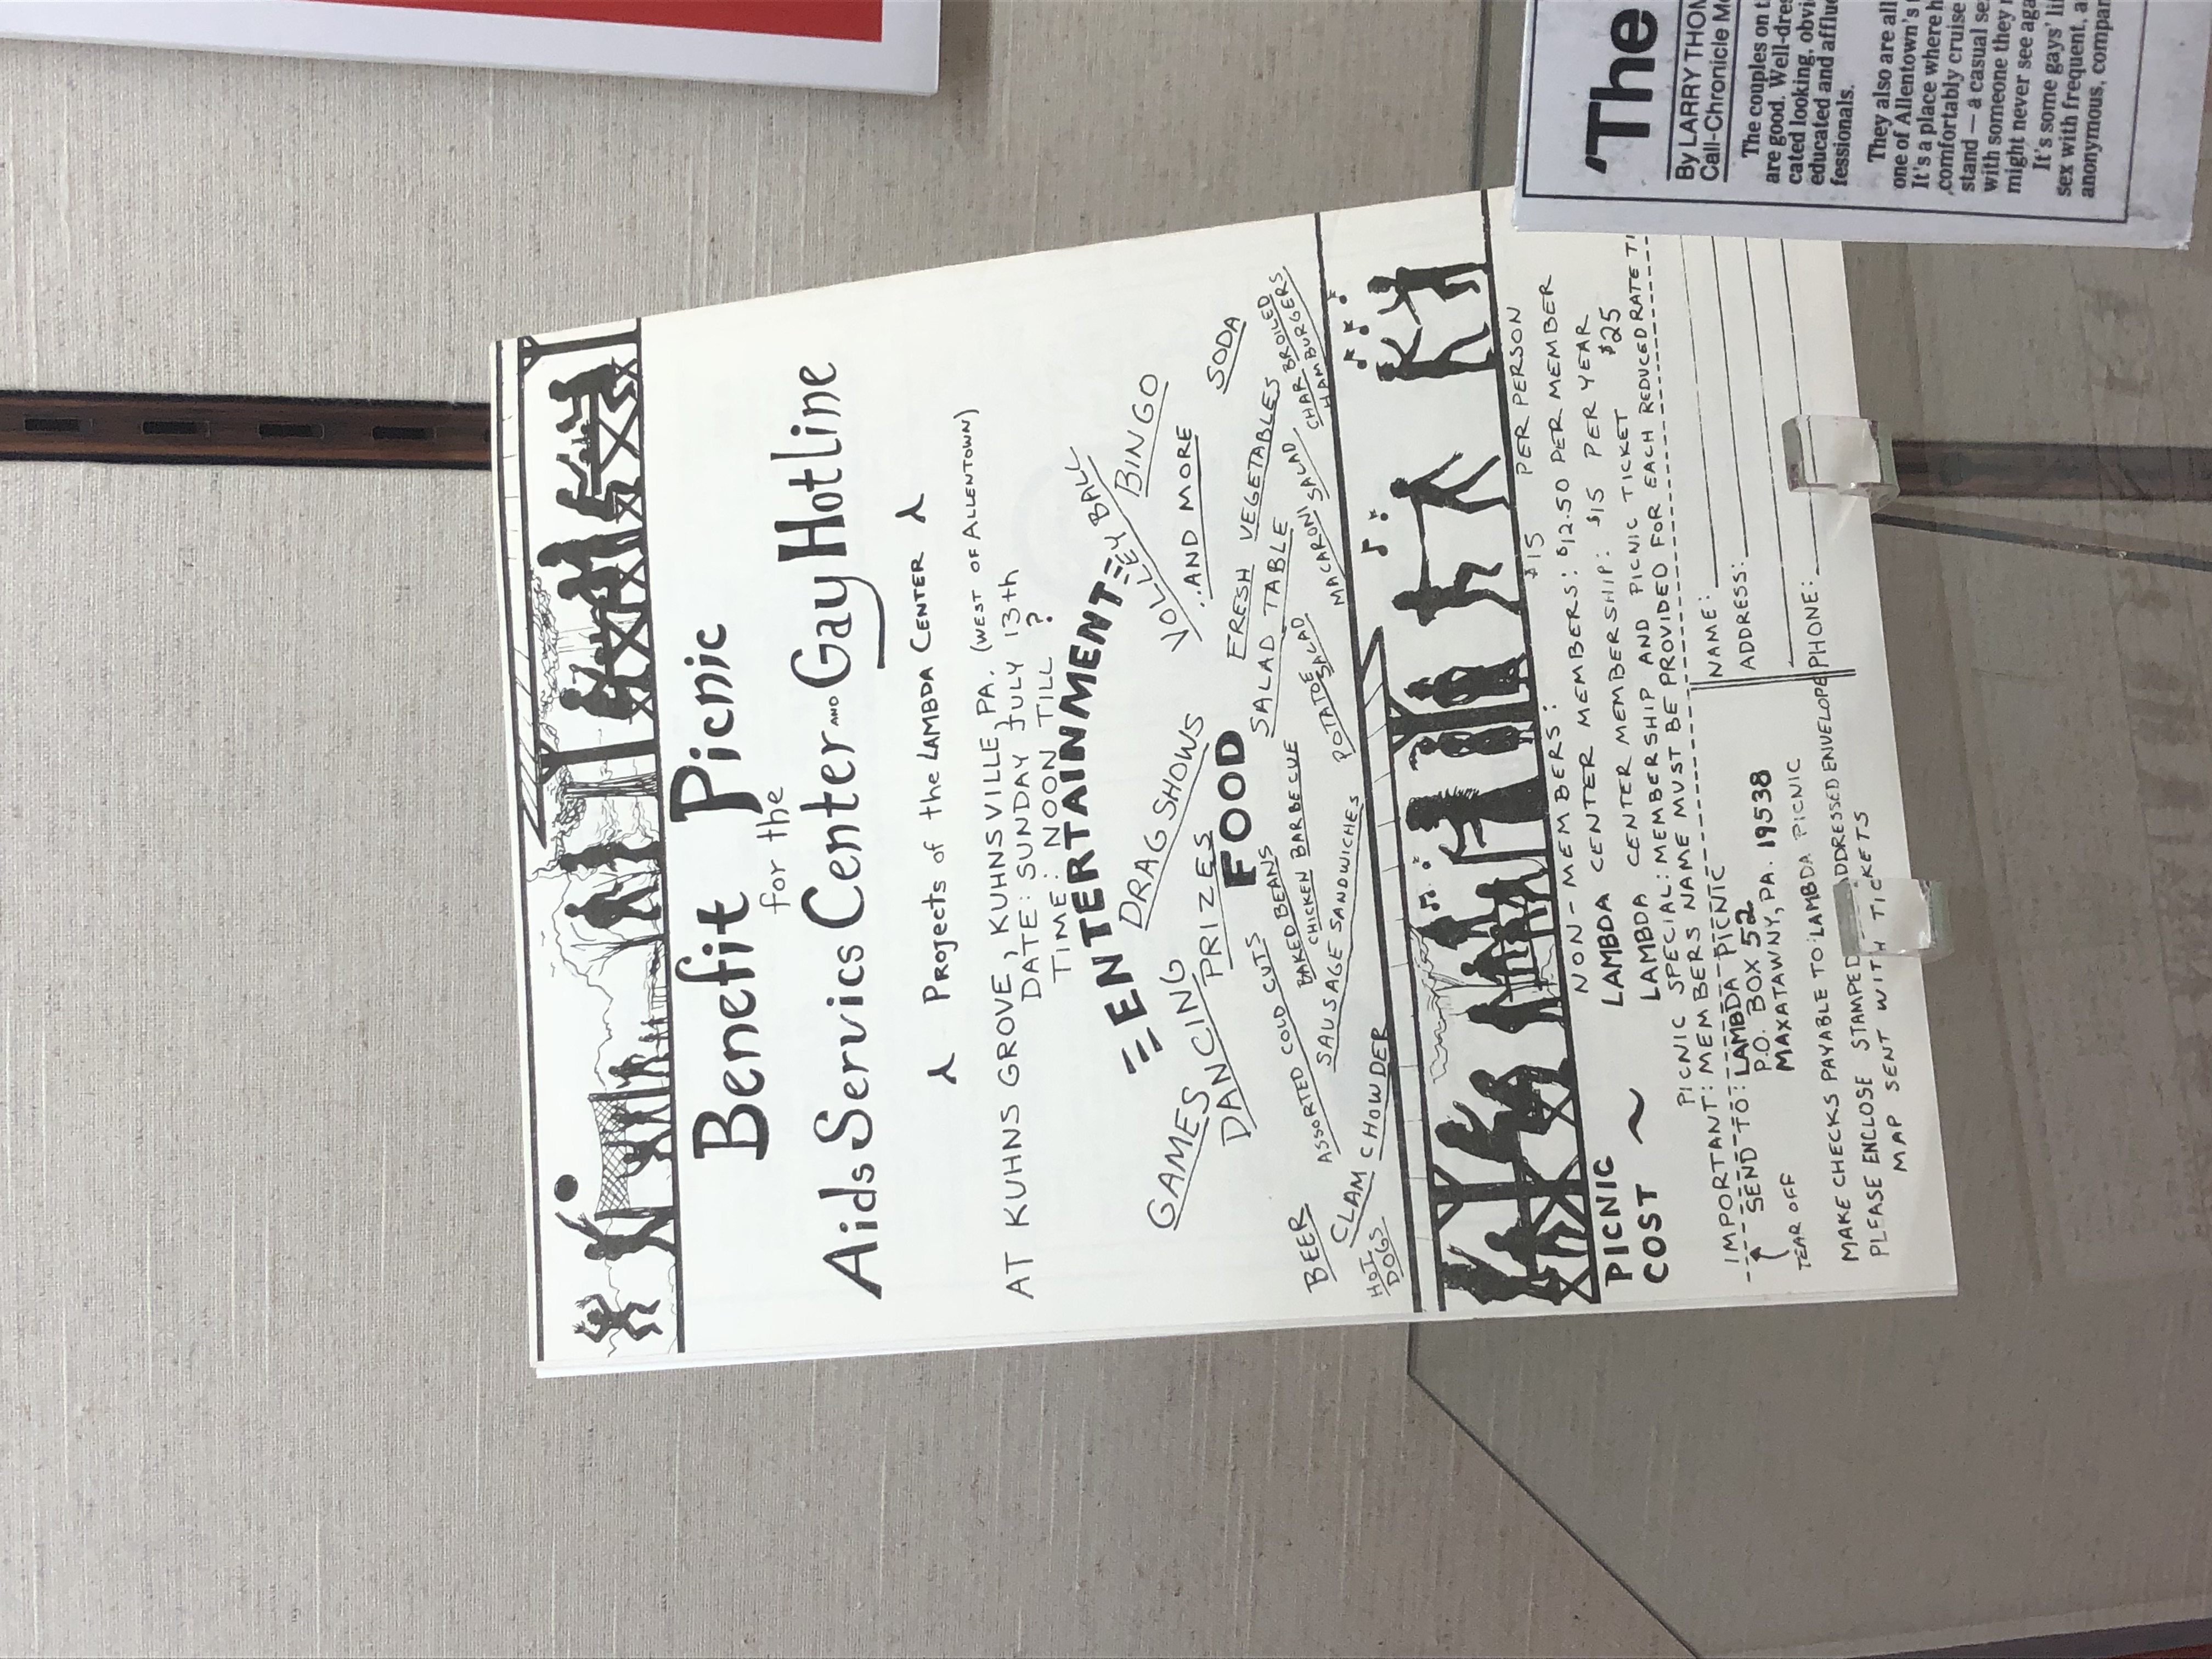 Benefit Picnic
for the
Aids Services Center AND Gay Hotline
λ Projects of the LAMBDA CENTER λ
AT KUHNS GROVE, KUHNSVILLE, PA. (WEST OF ALLENTOWN)
DATE: SUNDAY JULY 13th
TIME: NOON TILL ?
ENTERTAINMENT
GAMES
DRAG SHOWS
VOLLEY BALL
BINGO
DANCING
PRIZES
...AND MORE
FOOD
BEER
SODA
ASSORTED COLD CUTS
BAKED BEANS
FRESH VEGETABLES
SALAD TABLE
CHICKEN BARBECUE
CHAR BROILED
HAMBURGERS
HOT
DOGS
CLAM CHOWDER
SAUSAGE SANDWICHES
POTATOE
SALAD
MACARONI SALAD
PICNIC
COST ~
NON-MEMBERS: $15 PER PERSON
LAMBDA CENTER MEMBERS: $12.50 PER MEMBER
LAMBDA CENTER MEMBERSHIP: $15 PER YEAR
PICNIC SPECIAL: MEMBERSHIP AND PICNIC TICKET $25
IMPORTANT: MEMBERS NAME MUST BE PROVIDED FOR EACH REDUCED RATE TI
SEND TO: LAMBDA PICNIC
P.O. BOX 52
MAXATAWNY, PA. 19538
TEAR OFF
MAKE CHECKS PAYABLE TO: LAMBDA PICNIC
PLEASE ENCLOSE STAMPED ADDRESSED ENVELOPE
MAP SENT WITH TICKETS
NAME:
ADDRESS:
PHONE:
'The
By LARRY THOM
Call-Chronicle Me
The couples on t
are good. Well-dres
cated looking, obvi
educated and afflue
fessionals.
They also are all
one of Allentown's
It's a place where h
comfortably cruise
stand — a casual se
with someone they
might never see aga
It's some gays' lif
sex with frequent, a
anonymous, compar